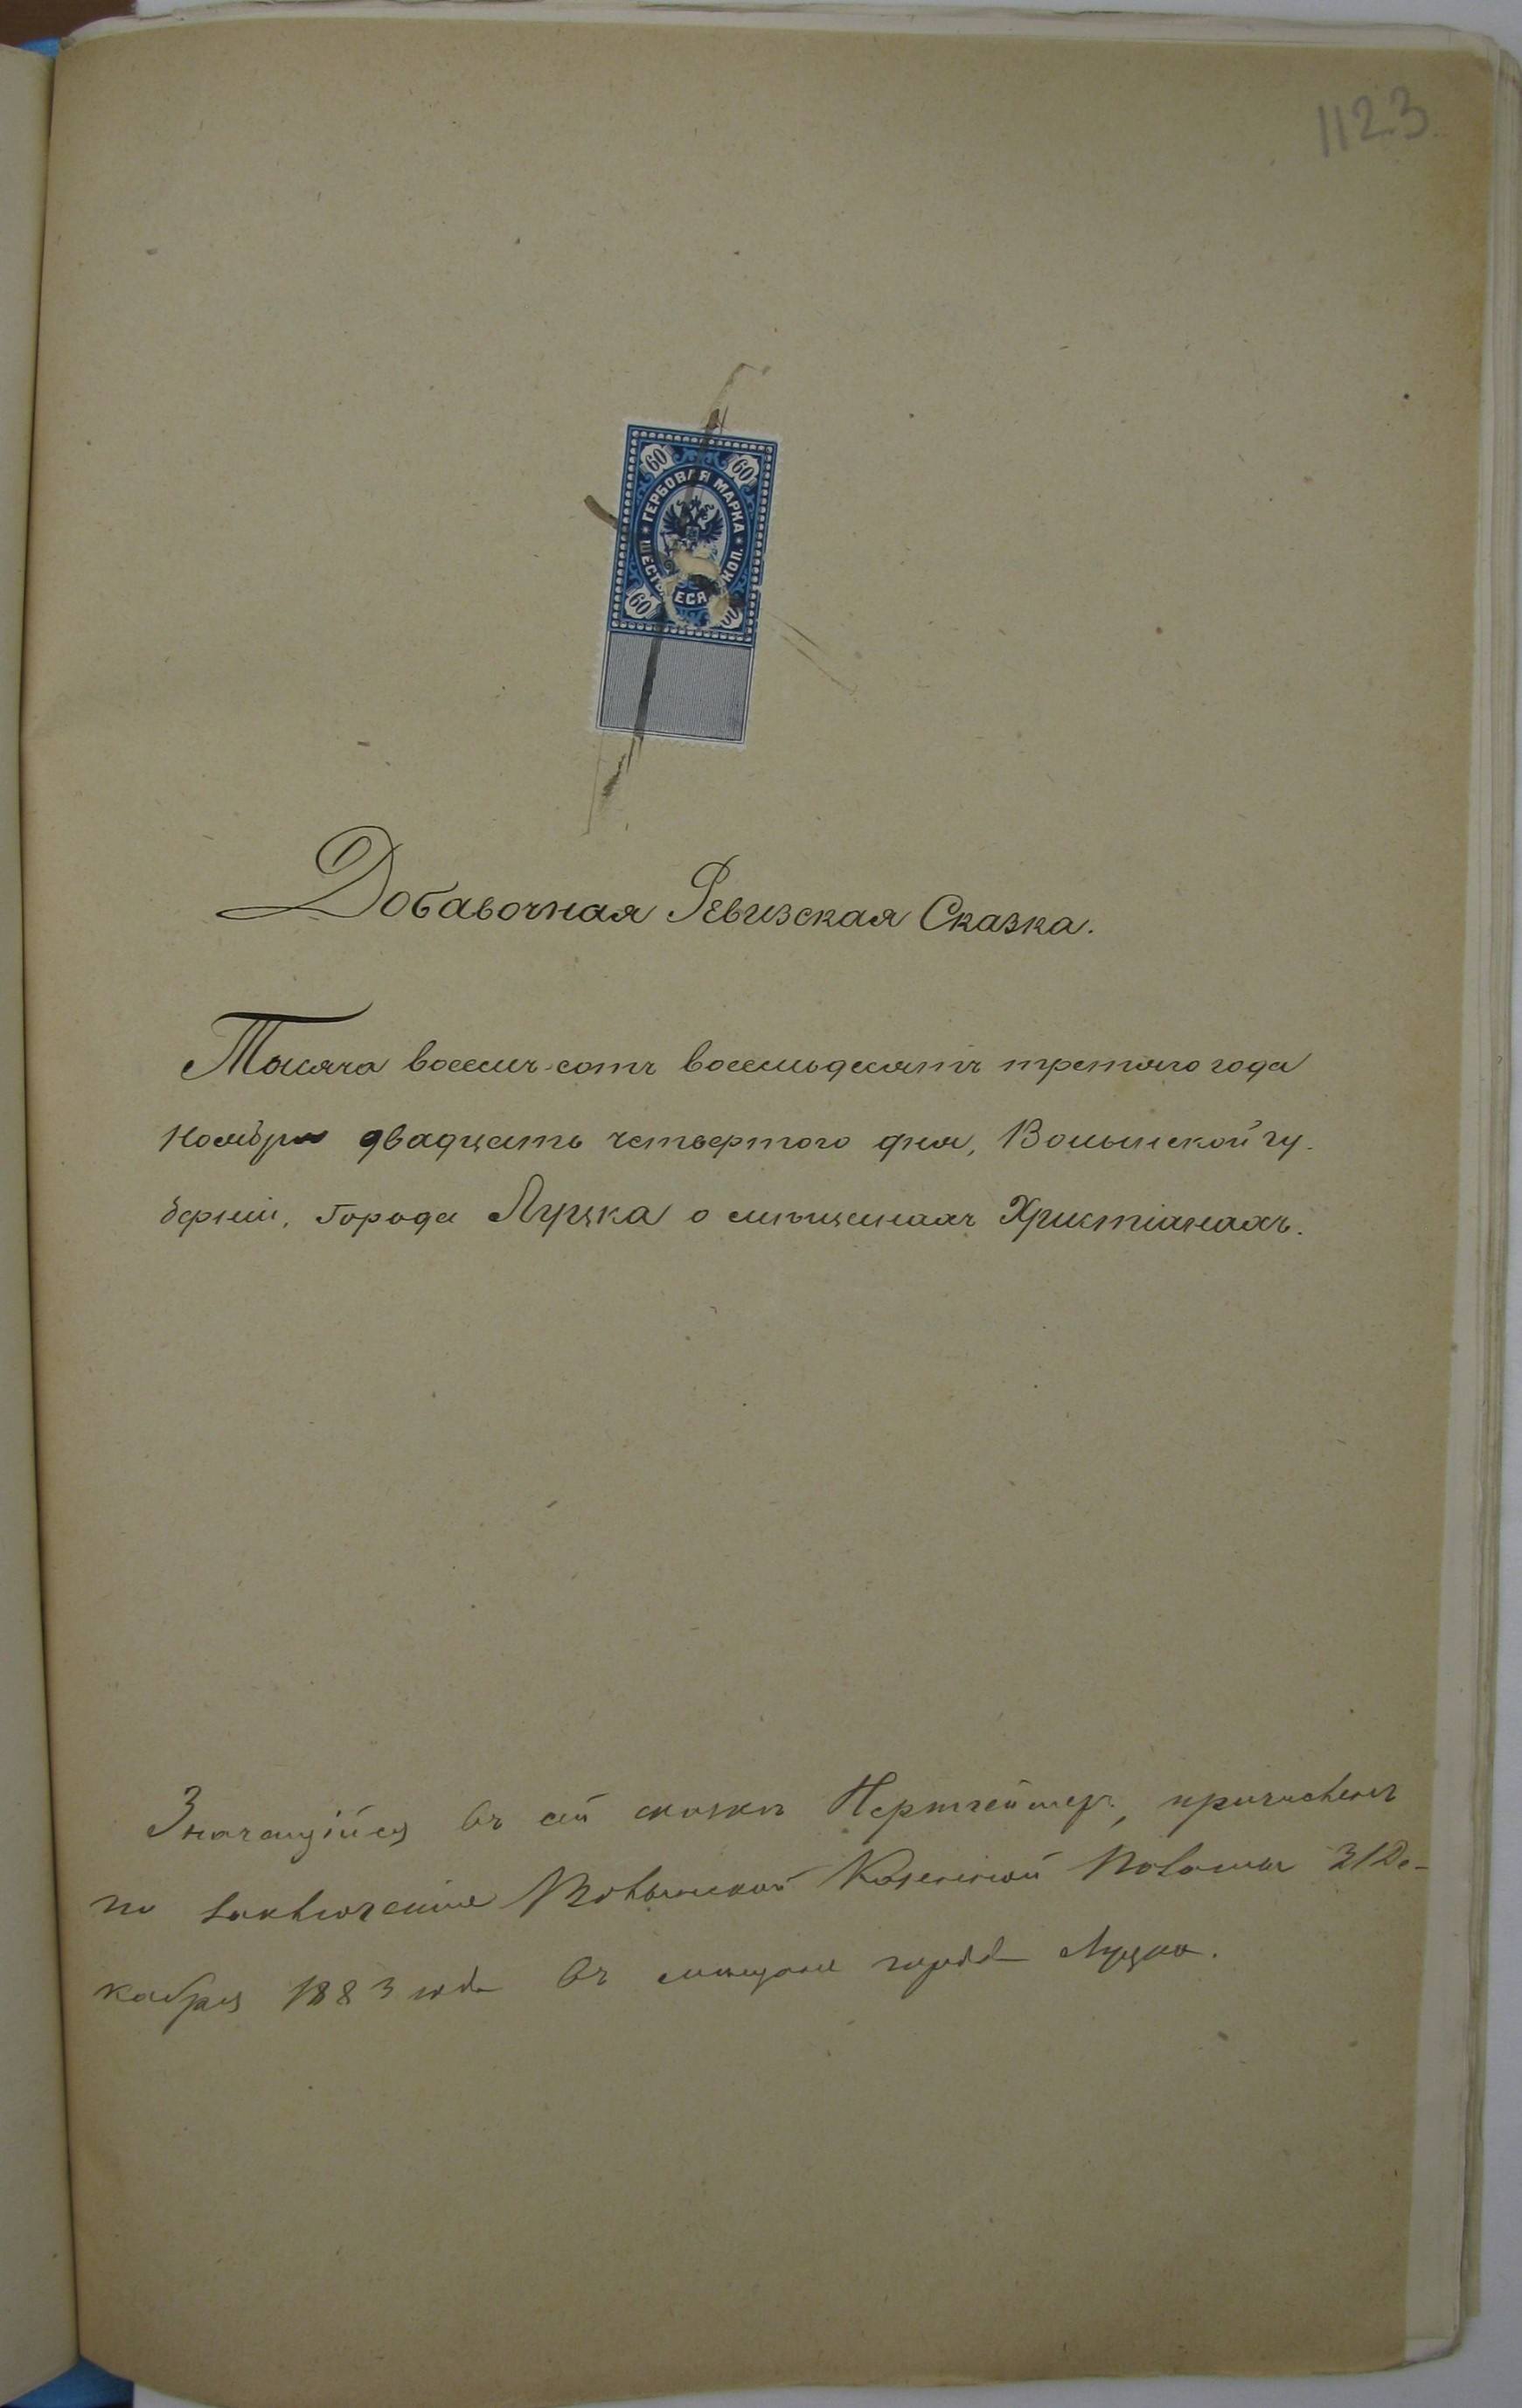 1123
60 60
ГЕРБОВАЯ МАРКА
ШЕСТЬ ЕСЯ КОП.
60
Добавочная Ревизская Сказка.
Тысяча восемь-сотъ восемьдесятъ третьяго года
Ноября двадцать четвертого дня, Волынской гу-
берніи, Города Луцка о мѣщанахъ Христіанахъ.
Значащійся въ сей сказкѣ причисленъ
по заключенію Волынской Казенной Палаты 31 Де-
кабря 1883 года въ мѣщане города Луцка.